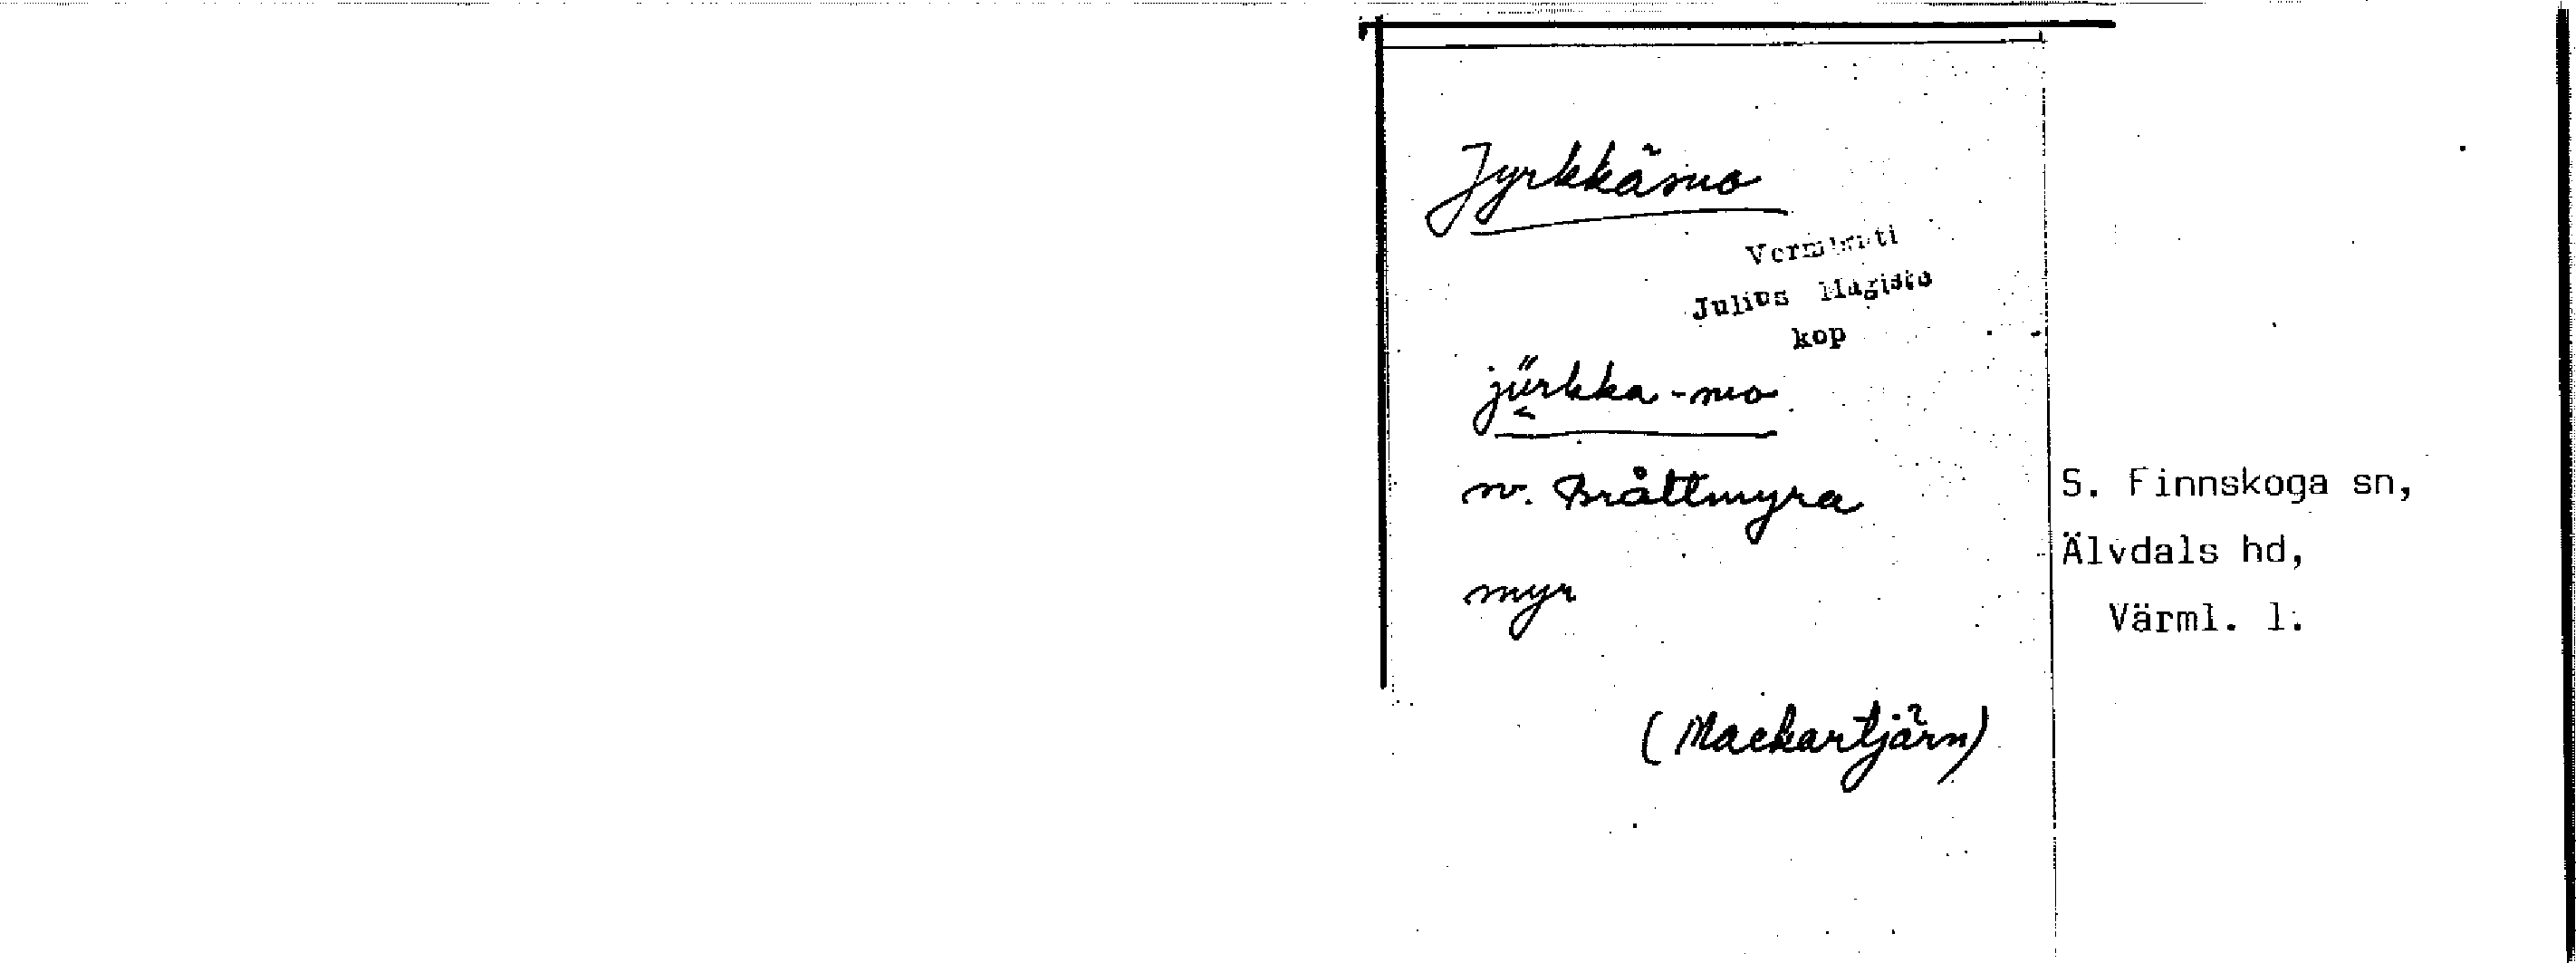 Jyrkkäsuo
Vermlanti
Julius Mägiste
kop
jürkka-suo
sv. Bråttmyra
myr
(Mackartjärn)
S. Finnskoga sn,
Älvdals hd,
Värml. l.